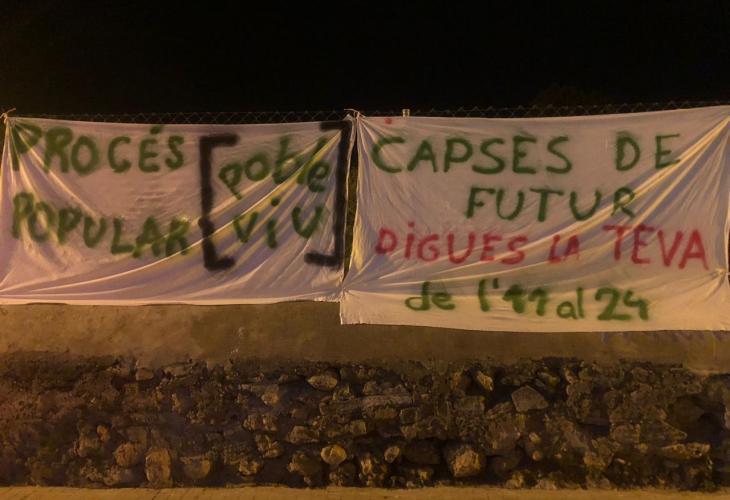 PROCÉS
POPULAR
[poble
viu]
CAPSES DE
FUTUR
DIGUES LA TEVA
de l'11 al 24